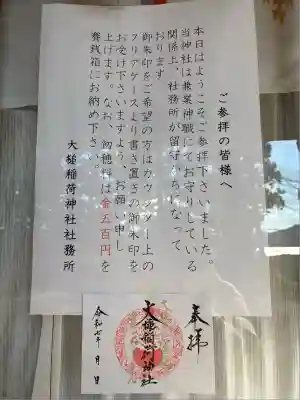 ご参拝の皆様へ
本日はようこそご参拝下さいました。
当神社は兼業神職にてお守りしている
関係上、社務所が留守がちになって
おります
御朱印をご希望の方はカウンター上の
クリアケースより書き置きの御朱印を
お受け下さいますよう、お願い申し
上げます。なお、初穂料は金五百円を
賽銭箱にお納め下さい。
大槌稲荷神社社務所
奉拝
大槌稲荷神社
令和七年 月 日